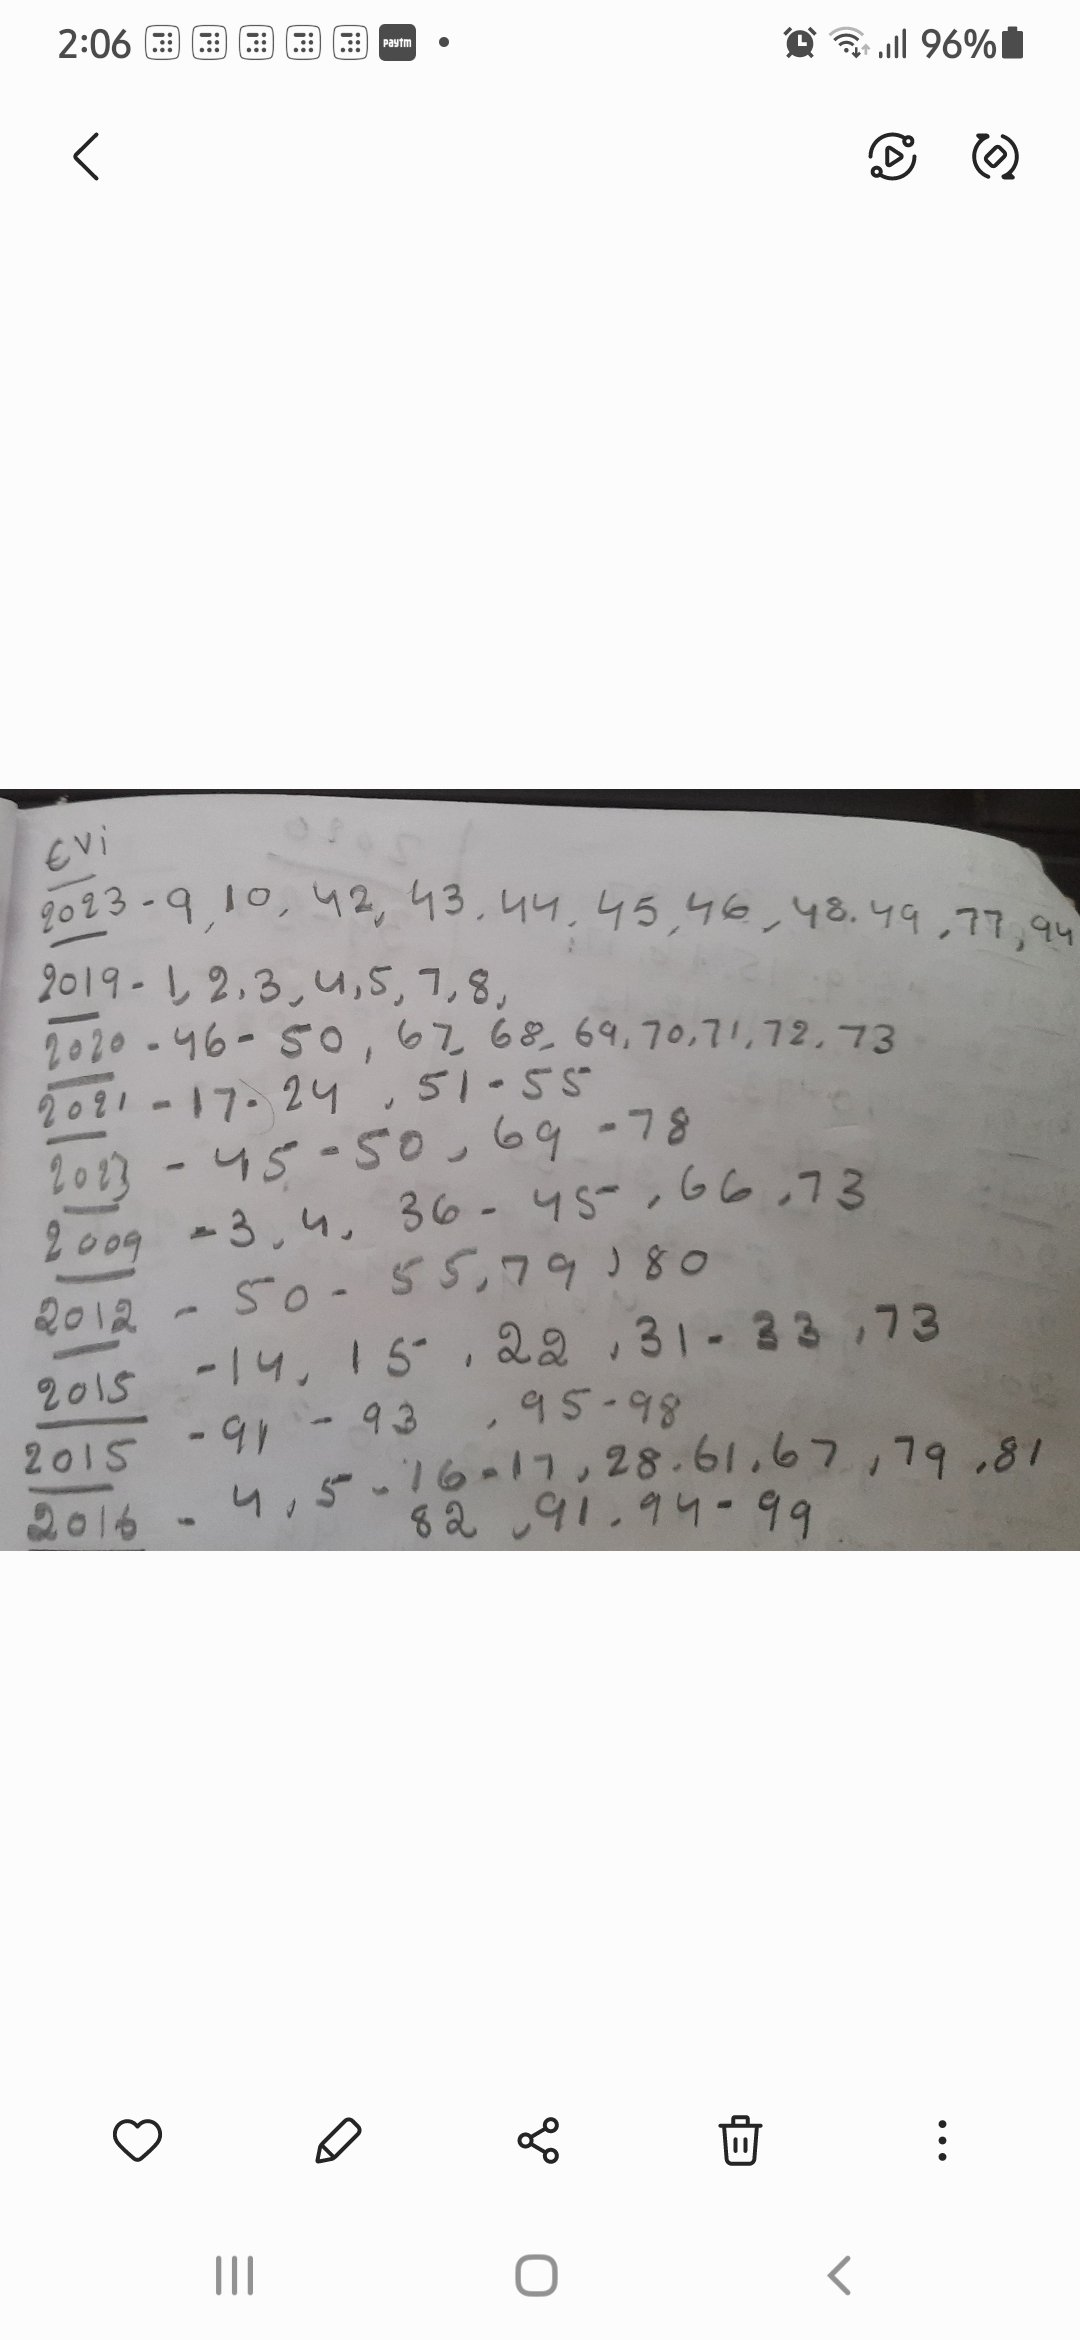 2:06 paytm 96%
Evi
2023 - 9, 10, 42, 43, 44, 45, 46, 48. 49, 77, 94
2019 - 1, 2, 3, 4, 5, 7, 8,
2020 - 46 - 50, 67, 68, 69, 70, 71, 72, 73
2021 - 17 - 24, 51 - 55
2023 - 45 - 50, 69 - 78
2009 - 3, 4, 36 - 45, 66, 73
2012 - 50 - 55, 79, 80
2015 - 14, 15, 22, 31 - 33, 73
2015 - 91 - 93, 95 - 98
2016 - 4, 5 - 16 - 17, 28. 61, 67, 79, 81
82, 91, 94 - 99